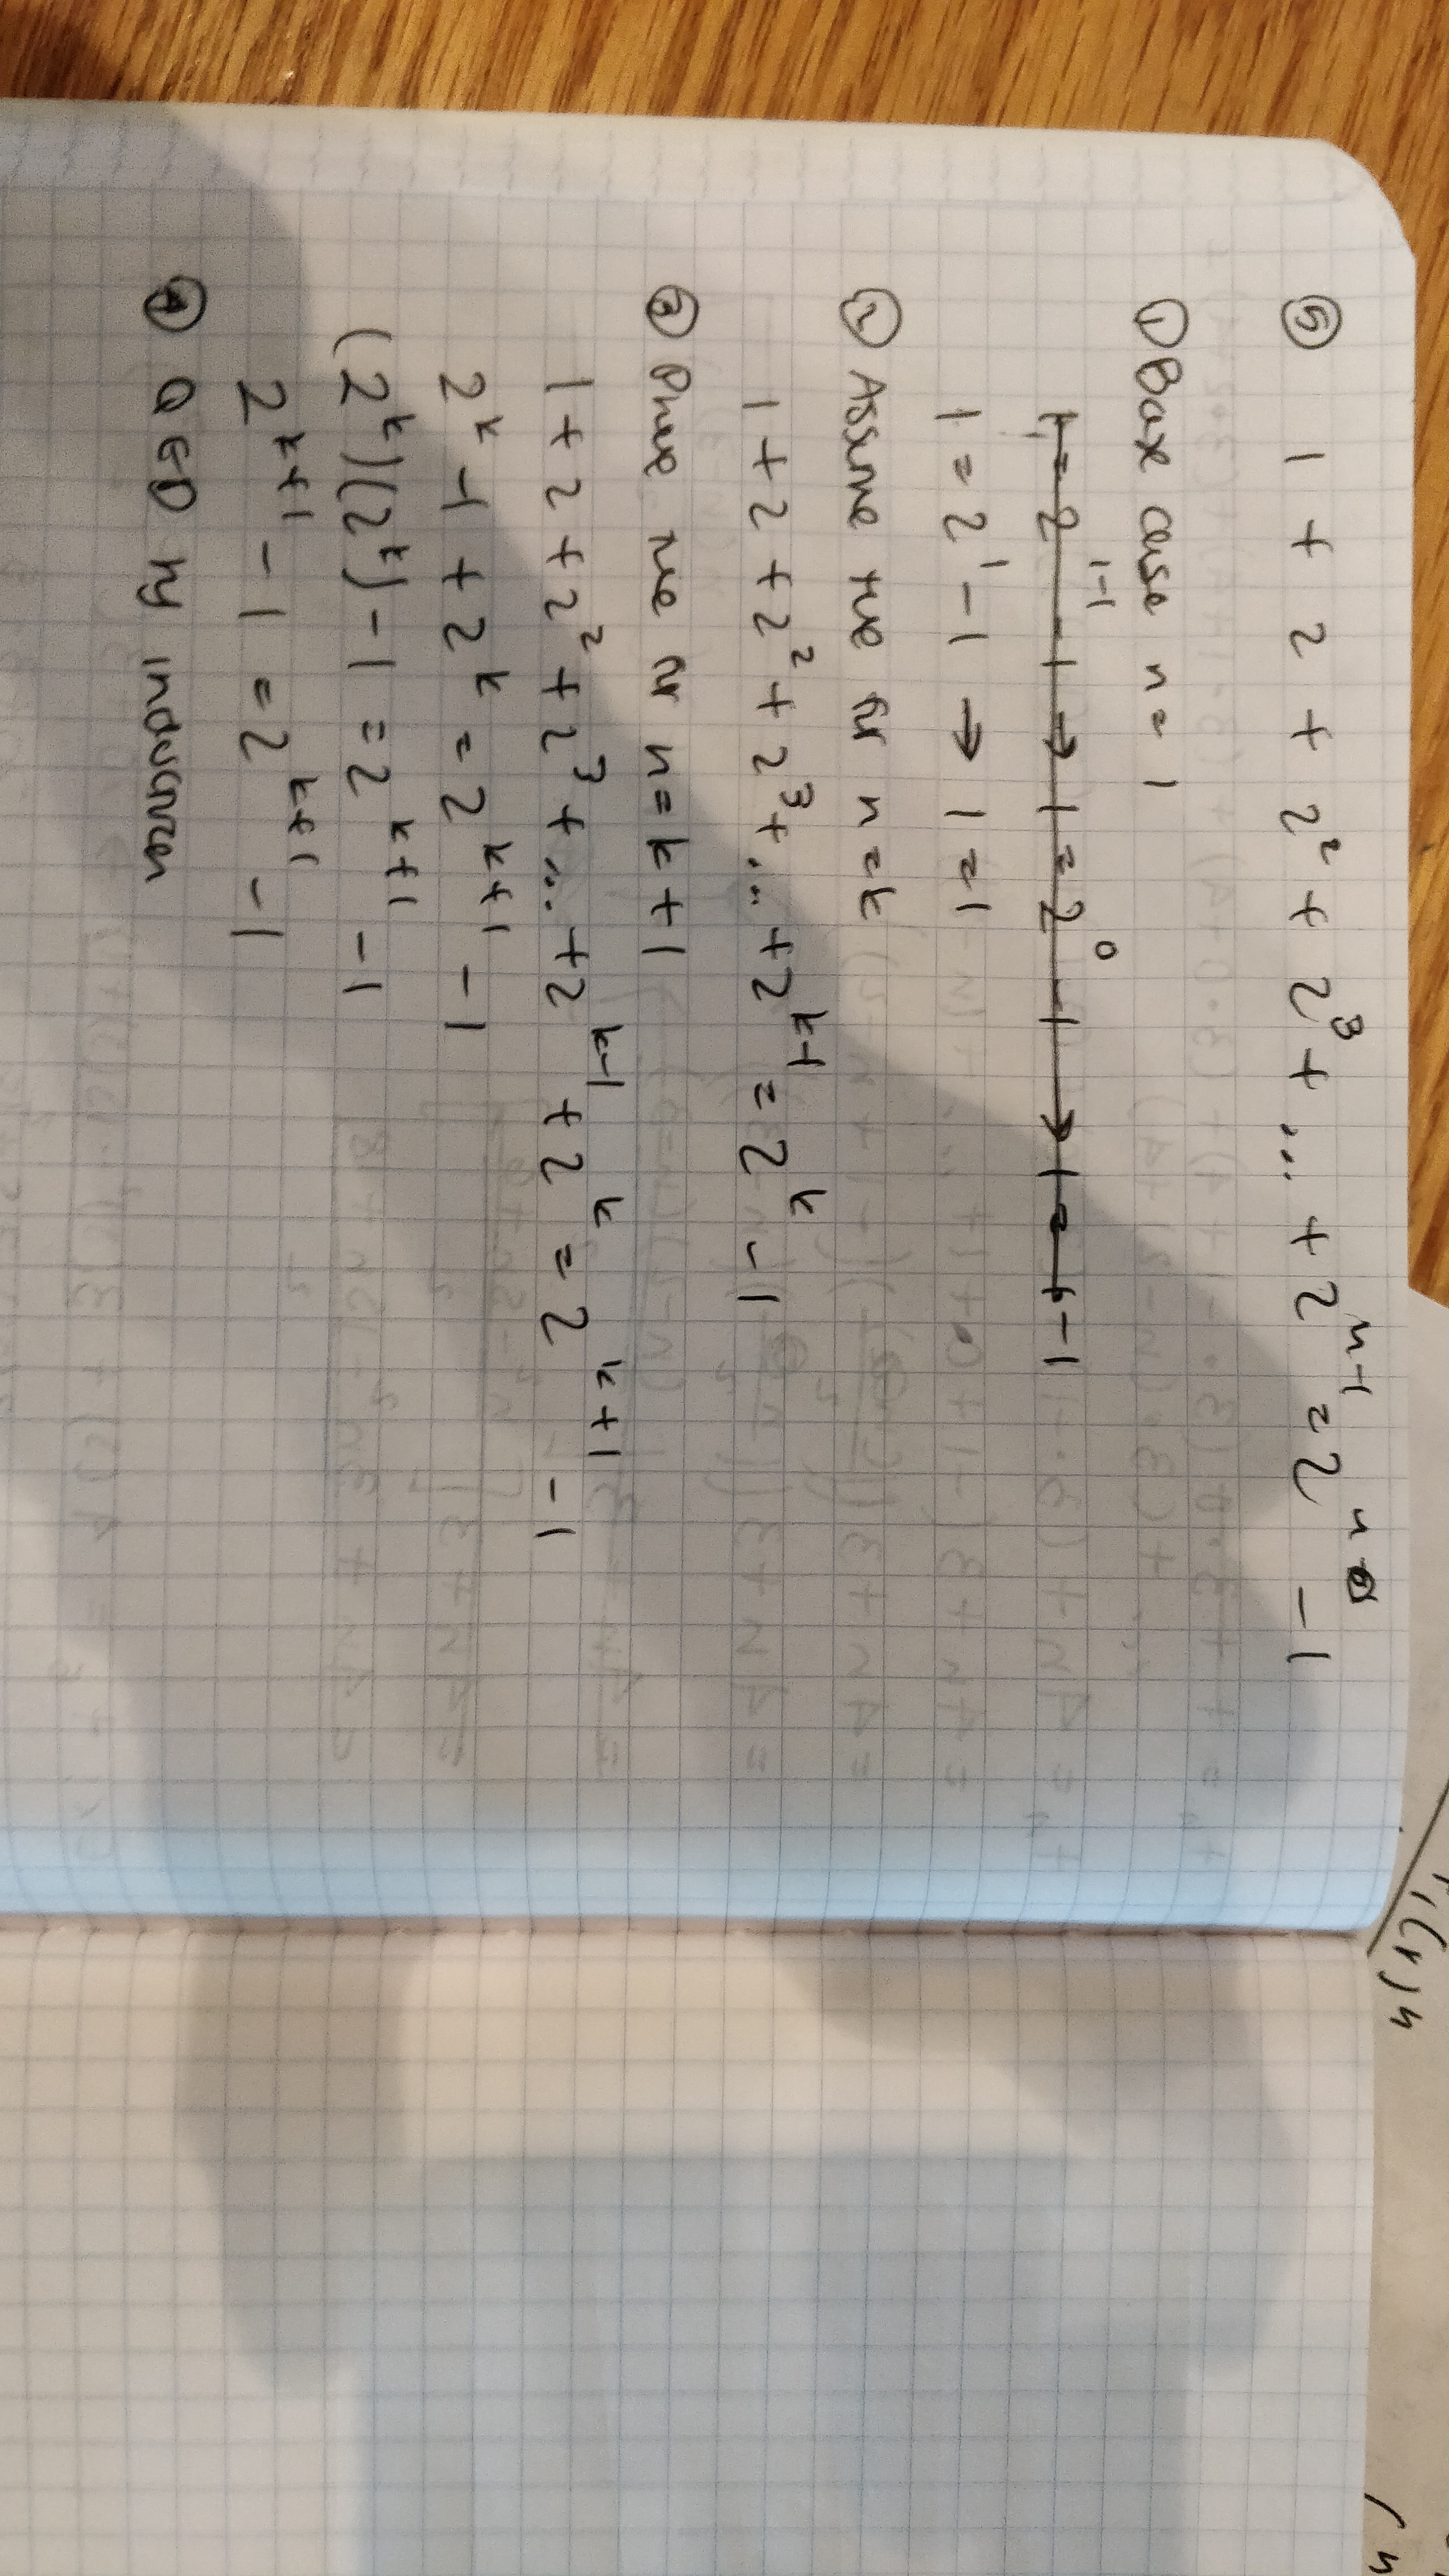 ⑤ 1 + 2 + 2² + 2³ + ... + 2ⁿ⁻¹ = 2ⁿ - 1
① Base case n = 1
1 = 2¹⁻¹ - 1 → 1 = 2⁰ - 1 → 1 = 1 - 1
1 = 2¹ - 1 → 1 = 1
② Assume true for n = k
1 + 2 + 2² + 2³ + ... + 2ᵏ⁻¹ = 2ᵏ - 1
③ Prove true for n = k + 1
1 + 2 + 2² + 2³ + ... + 2ᵏ⁻¹ + 2ᵏ = 2ᵏ⁺¹ - 1
2ᵏ - 1 + 2ᵏ = 2ᵏ⁺¹ - 1
(2ᵏ)(2ᵏ) - 1 = 2ᵏ⁺¹ - 1
2ᵏ⁺¹ - 1 = 2ᵏ⁺¹ - 1
④ QED by induction